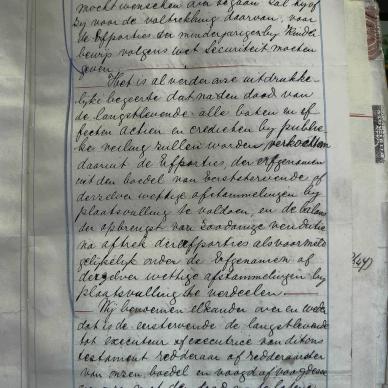 mocht wenschen over te gaan zal hij of
zij voor de voltrekking daarvan, voor
de Erfporties der minderjarigen bij Kinder
bewijs volgens wet Securiteit moeten
geven.
Het is al verder onse uitdrukke-
lijke begeerte dat na den dood van
de langstlevende alle baten en ef
fecten actien en credieten bij publie-
ke veiling zullen worden verkocht en
daaruit de Erfporties der erfgenamen
uit den boedel van Eerststervende of
derzelver wettige afstammelingen bij
plaatsvulling te voldoen, en de balans
der opbrengst van zoodanige venditie
na aftrek der erfporties als voormeld
gelijkelijk onder de Erfgenamen of
derzelver wettige afstammelingen bij
plaatsvulling te verdeelen.
Wij benoemen elkander over en weder
dat is de eerststervende de langstlevende
tot executeur of executrice van dit ons
testament redderaar of redderaarster
van onzen boedel en voogd of voogdesse